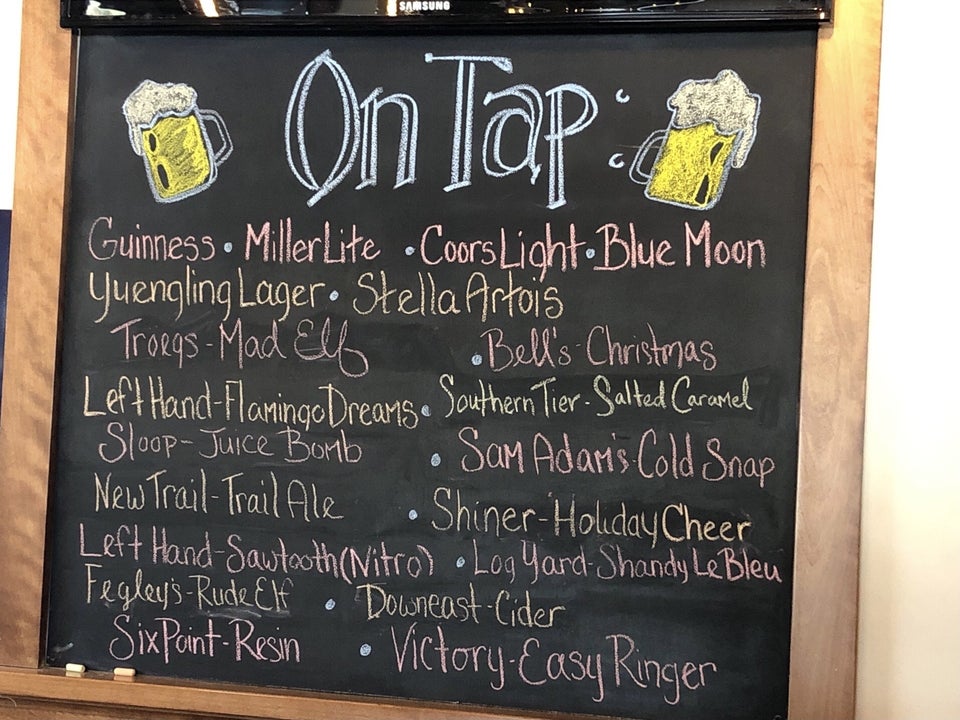 SAMSUNG
On Tap:
Guinness • Miller Lite • Coors Light • Blue Moon
Yuengling Lager • Stella Artois
Troegs - Mad Elf • Bell's - Christmas
Left Hand - Flamingo Dreams • Southern Tier - Salted Caramel
Sloop - Juice Bomb • Sam Adam's Cold Snap
New Trail - Trail Ale • Shiner - Holiday Cheer
Left Hand - Sawtooth (Nitro) • Log Yard - Shandy Le Bleu
Fegley's - Rude Elf • Downeast - Cider
Six Point - Resin • Victory - Easy Ringer